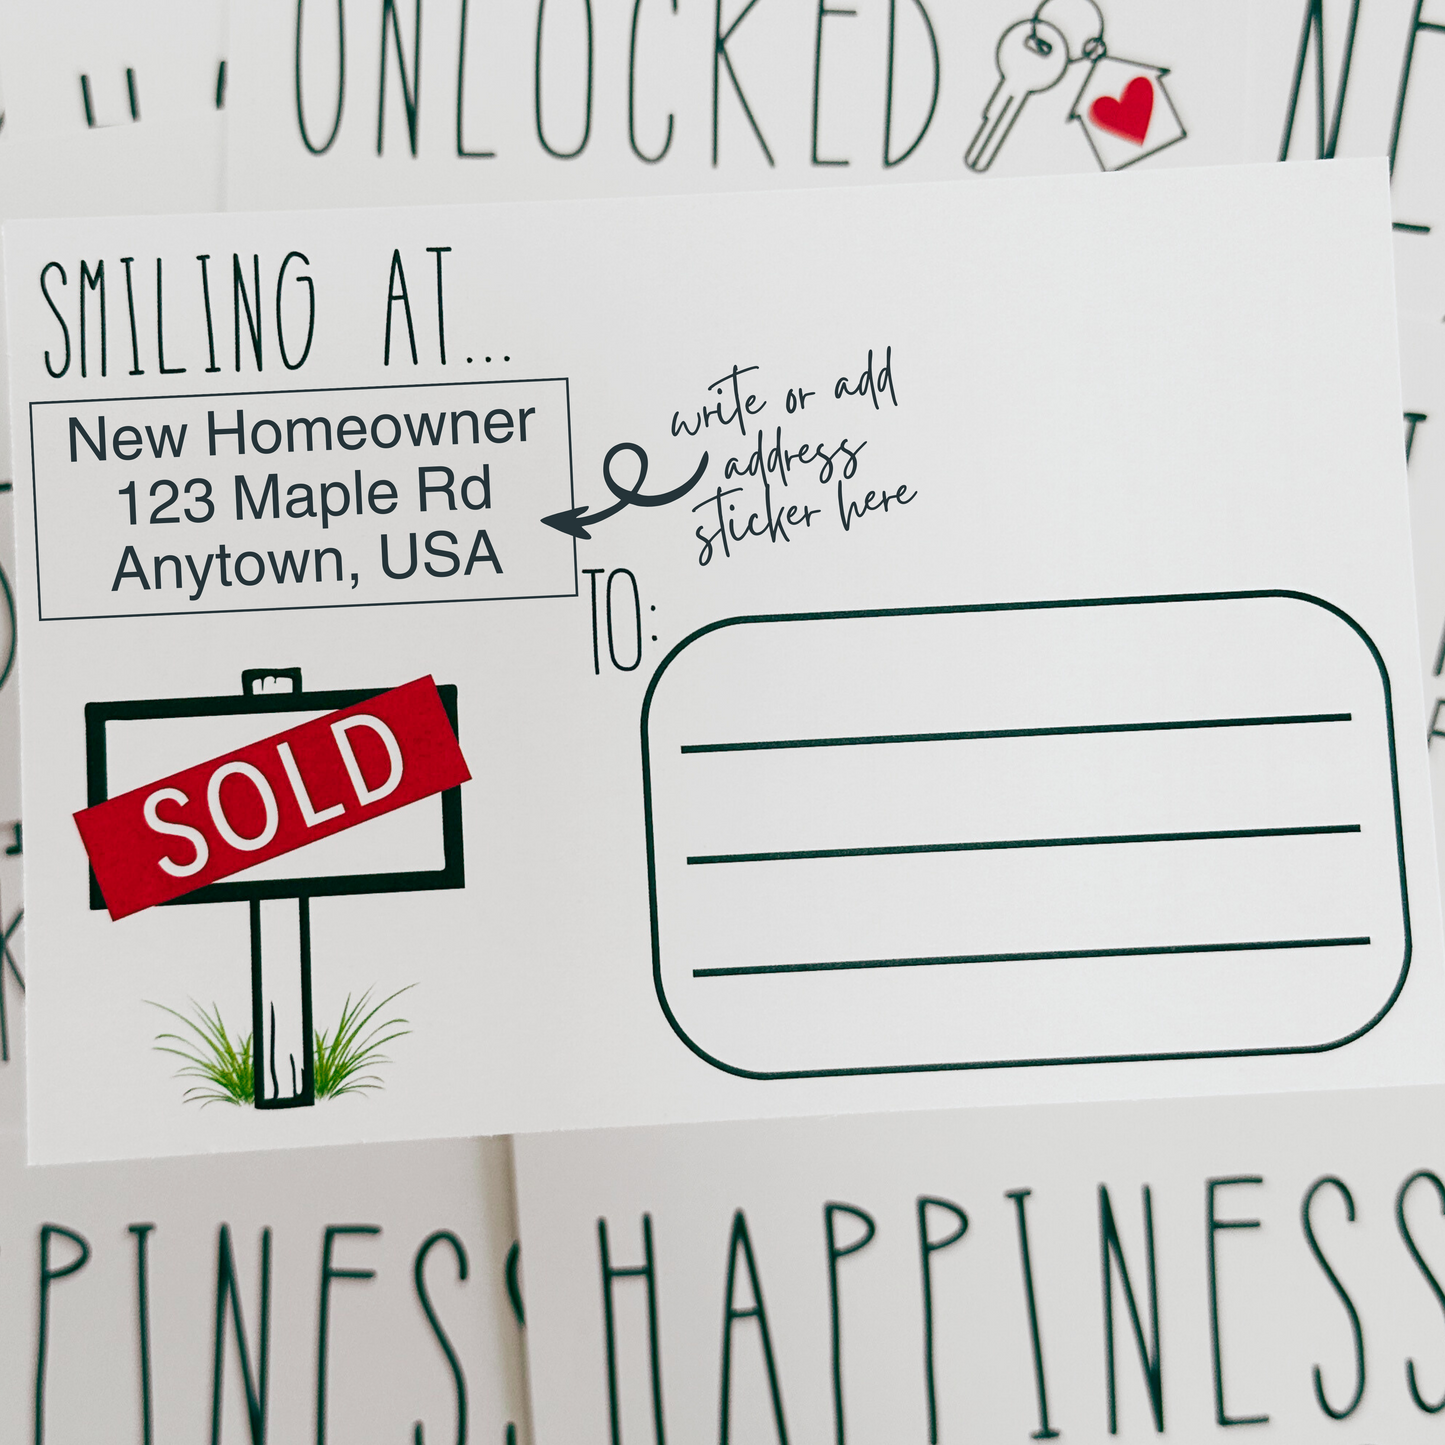 UNLOCKED
SMILING AT...
New Homeowner
123 Maple Rd
Anytown, USA
write or add
address
sticker here
TO:
SOLD
HAPPINESS